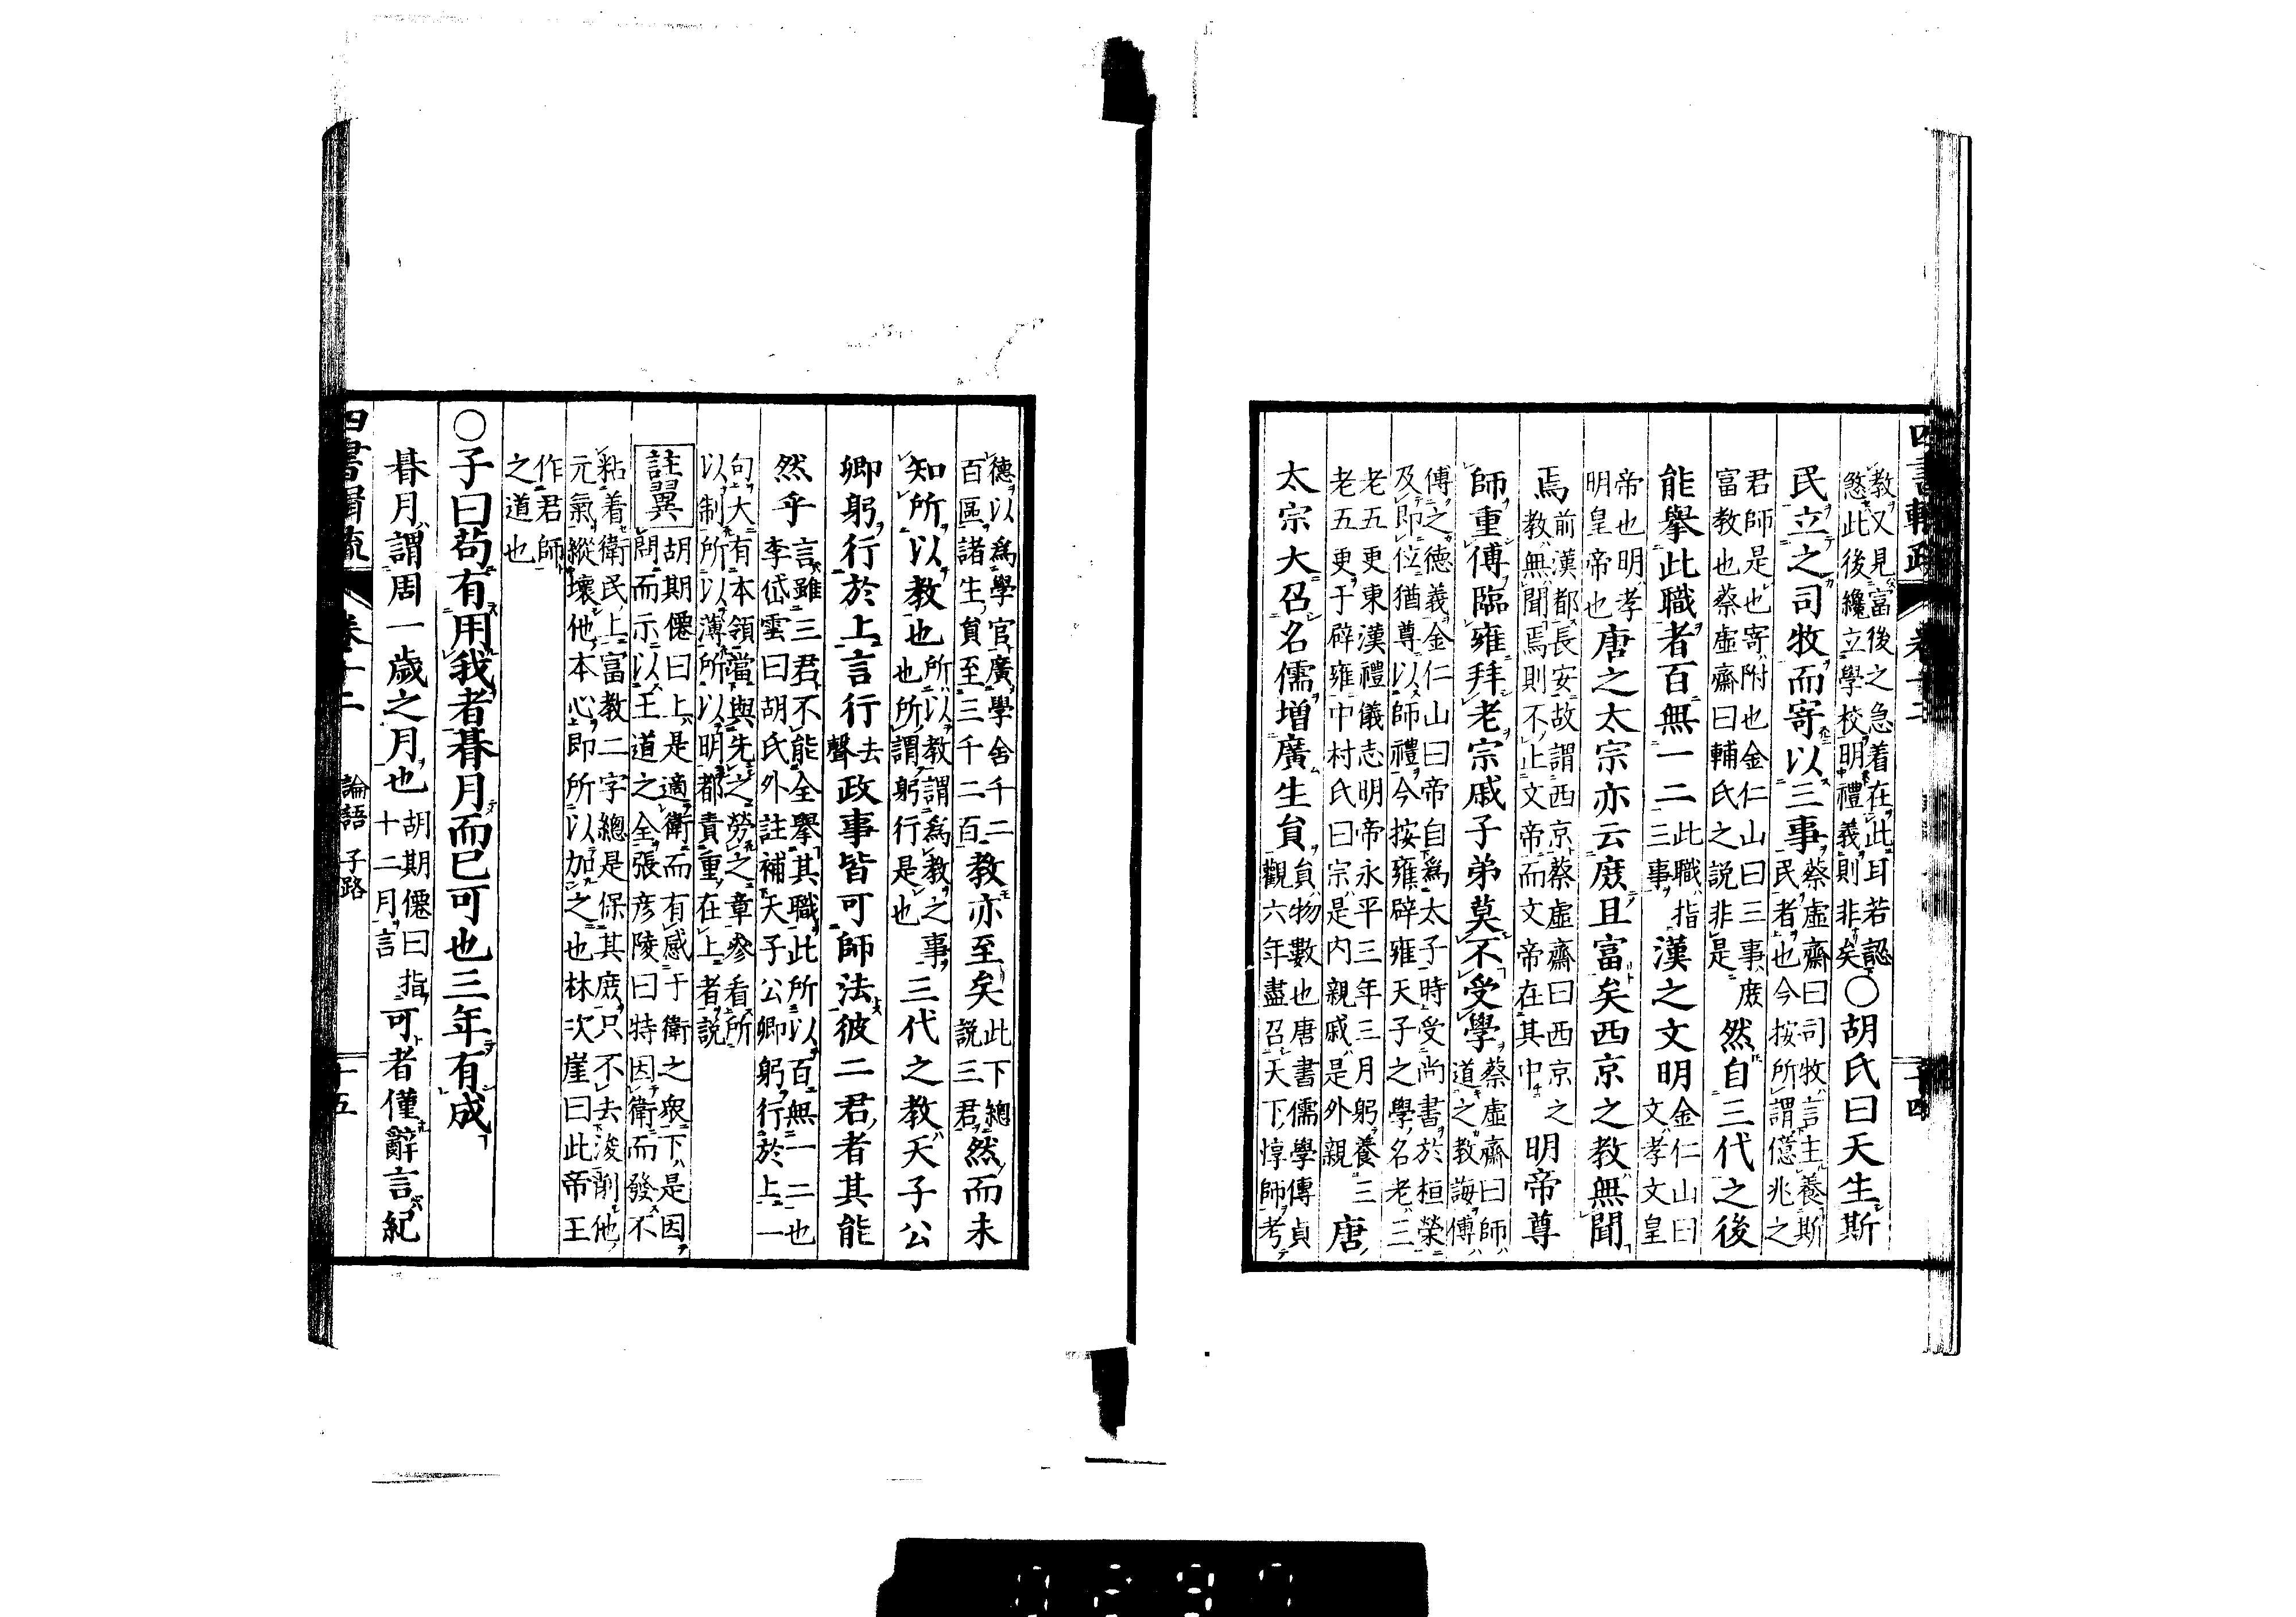 教又見富後之急着在此耳若認
慾此後纔立學校明禮義則非矣〇胡氏曰天生斯
民立之司牧而寄以三事蔡虛齋曰司牧言主養斯
民者也今按所謂億兆之
君師是也寄附也金仁山曰三事庶
富教也蔡虛齋曰輔氏之説非是然自三代之後
能擧此職者百無一二此職指
三事漢之文明金仁山曰
文孝文皇
帝也明孝
明皇帝也唐之太宗亦云庶且富矣西京之教無聞
焉前漢都長安故謂西京蔡虛齋曰西京之
教無聞焉則不止文帝而文帝在其中明帝尊
師重傅臨雍拜老宗戚子弟莫不受學蔡虛齋曰師
道之教誨傅
傅之德義金仁山曰帝自爲太子時受尚書於桓榮
及即位猶尊以師禮今按雍辟雍天子之學名老三
老五更東漢禮儀志明帝永平三年三月躬養三
老五更于辟雍中村氏曰宗是内親戚是外親唐
太宗大召名儒增廣生員員物數也唐書儒學傳貞
觀六年盡召天下惇師考
德以爲學官廣學舍千二
百區諸生員至三千二百教亦至矣此下總
説三君然而未
知所以教也所以教謂爲教之事
也所謂躬行是也三代之教天子公
卿躬行於上言行去
聲政事皆可師法彼二君者其能
然乎言雖三君不能全擧其職此所以百無一二也
李岱雲曰胡氏外註補天子公卿躬行於上一
句大有本領當與先之勞之章參看所
以制所以薄所以明都責重在上者説
註翼胡期僊曰上是適衛而有感于衛之衆下是因
問而示以王道之全張彦陵曰特因衛而發不
粘着衛民上富教二字總是保其庶只不去浚削他
元氣縱壞他本心即所以加之也林次崖曰此帝王
作君師
之道也
〇子曰苟有用我者朞月而已可也三年有成
朞月謂周一歲之月也胡期僊曰指
十二月言可者僅辭言紀
四書
卷十二
論語 子路
十五